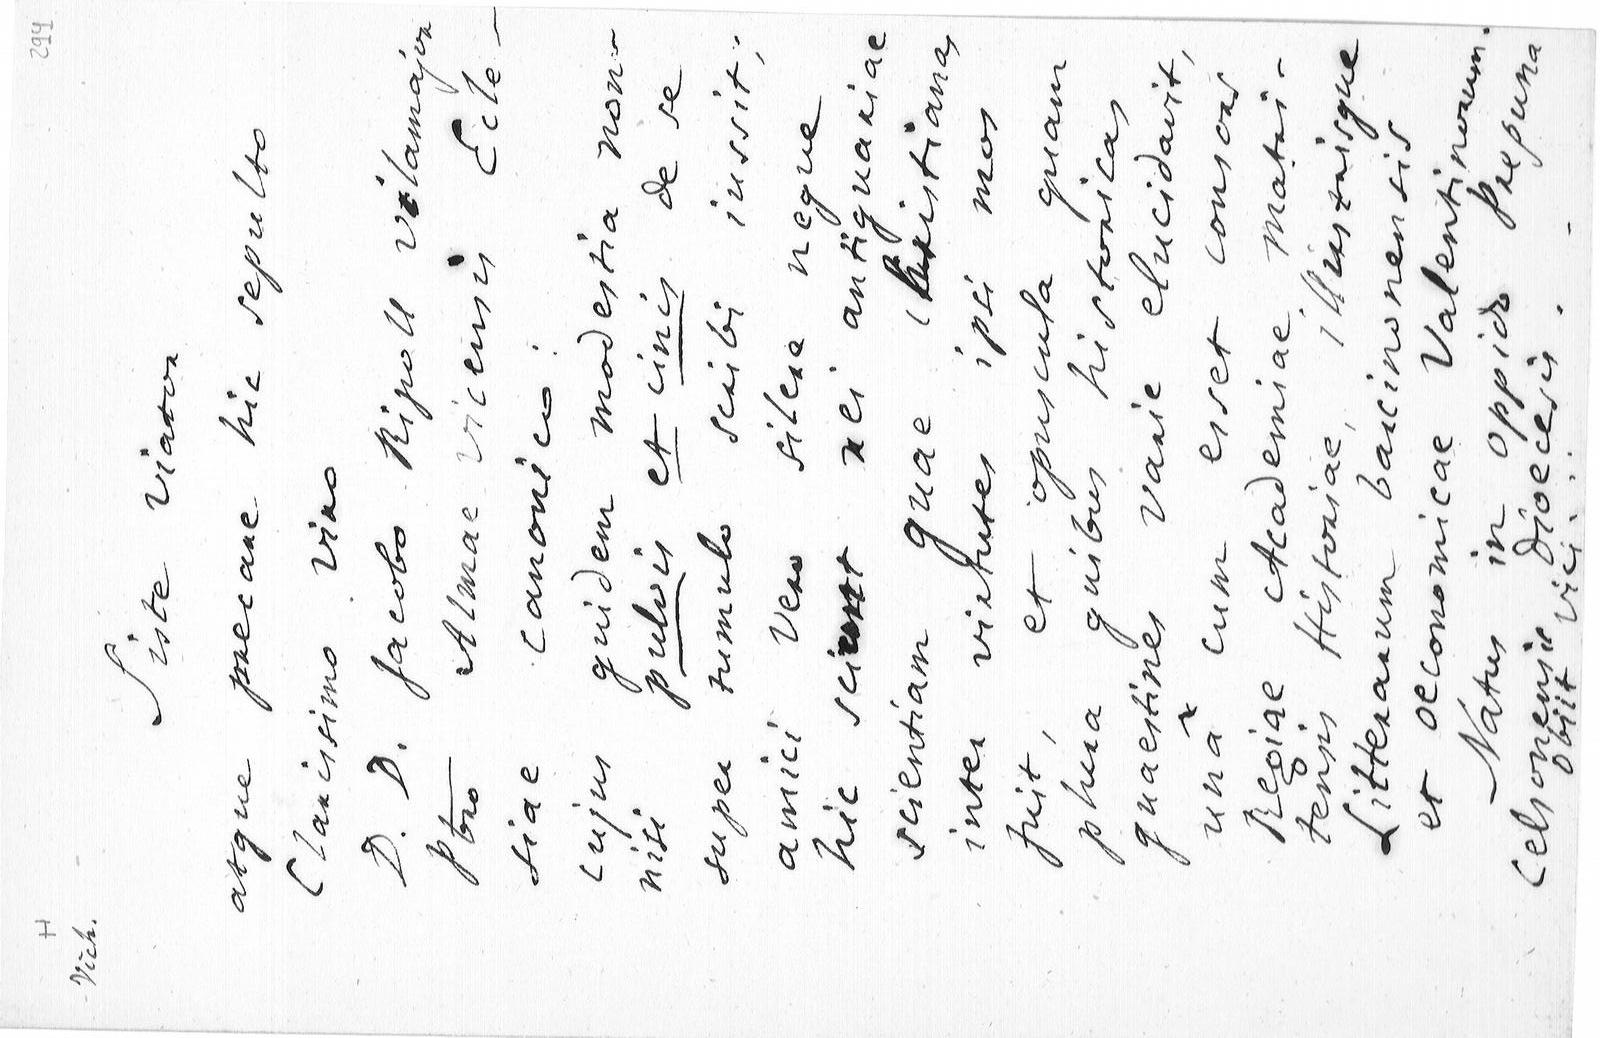 294
H
Vich.
Siste viator
atque precare hic sepulto
Clarissimo viro
D. D. Jacobo Ripoll Vilamajor
Pbro Almae Vicensis Ecle-
siae canonico:
cujus quidem modestia non
nisi pulvis et cinis de se
super tumulo scribi iussit;
amici vero silere neque
hic scirent rei antiquariae
scientiam quae Christiana,
inter virtutes ipsi mos
fuit, et opuscula quam
plura quibus historicas
quaestines varie elucidavit,
unà cum esset consors
Regiae Academiae matri-
tensis Historiae, illustrisque
Litterarum barcinonensis
et oeconomicae Valentinorum.
Natus in oppido Prepuna
Celsonensis Dioecesis.
Obiit Vici: . -